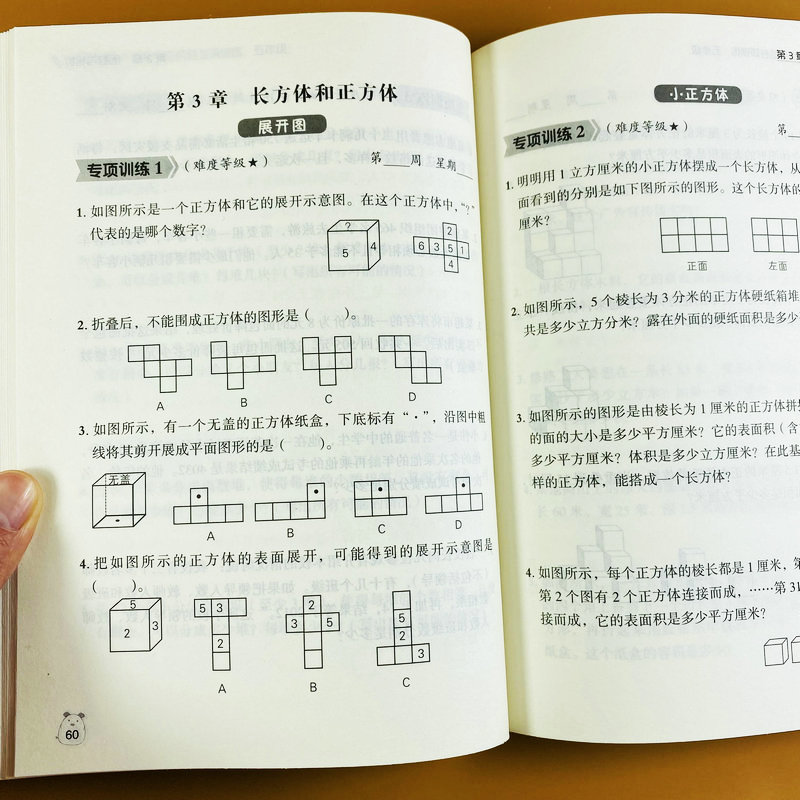 第3章 长方体和正方体
展开图
专项训练1 (难度等级★) 第 周 星期
1. 如图所示是一个正方体和它的展开示意图。在这个正方体中,“?”
代表的是哪个数字?
? 5 4
2
6 3 5 1
4
2. 折叠后,不能围成正方体的图形是( )。
A B C D
3. 如图所示,有一个无盖的正方体纸盒,下底标有“·”,沿图中粗
线将其剪开展成平面图形的是( )。
无盖
A B C D
4. 把如图所示的正方体的表面展开,可能得到的展开示意图是
( )。
5 2 3
5 3
2
A
2
3 5
B
5
2
3
C
60
第3章
小正方体
专项训练2 (难度等级★) 第
1. 明明用1立方厘米的小正方体摆成一个长方体,从
面看到的分别是如下图所示的图形。这个长方体的
厘米?
正面 左面
2. 如图所示,5个棱长为3分米的正方体硬纸箱堆
共是多少立方分米?露在外面的硬纸面积是多少
3. 如图所示的图形是由棱长为1厘米的正方体拼
的面的大小是多少平方厘米?它的表面积(含
多少平方厘米?体积是多少立方厘米?在此基
样的正方体,能搭成一个长方体?
4. 如图所示,每个正方体的棱长都是1厘米,第
第2个图有2个正方体连接而成,……第31
接而成,它的表面积是多少平方厘米?